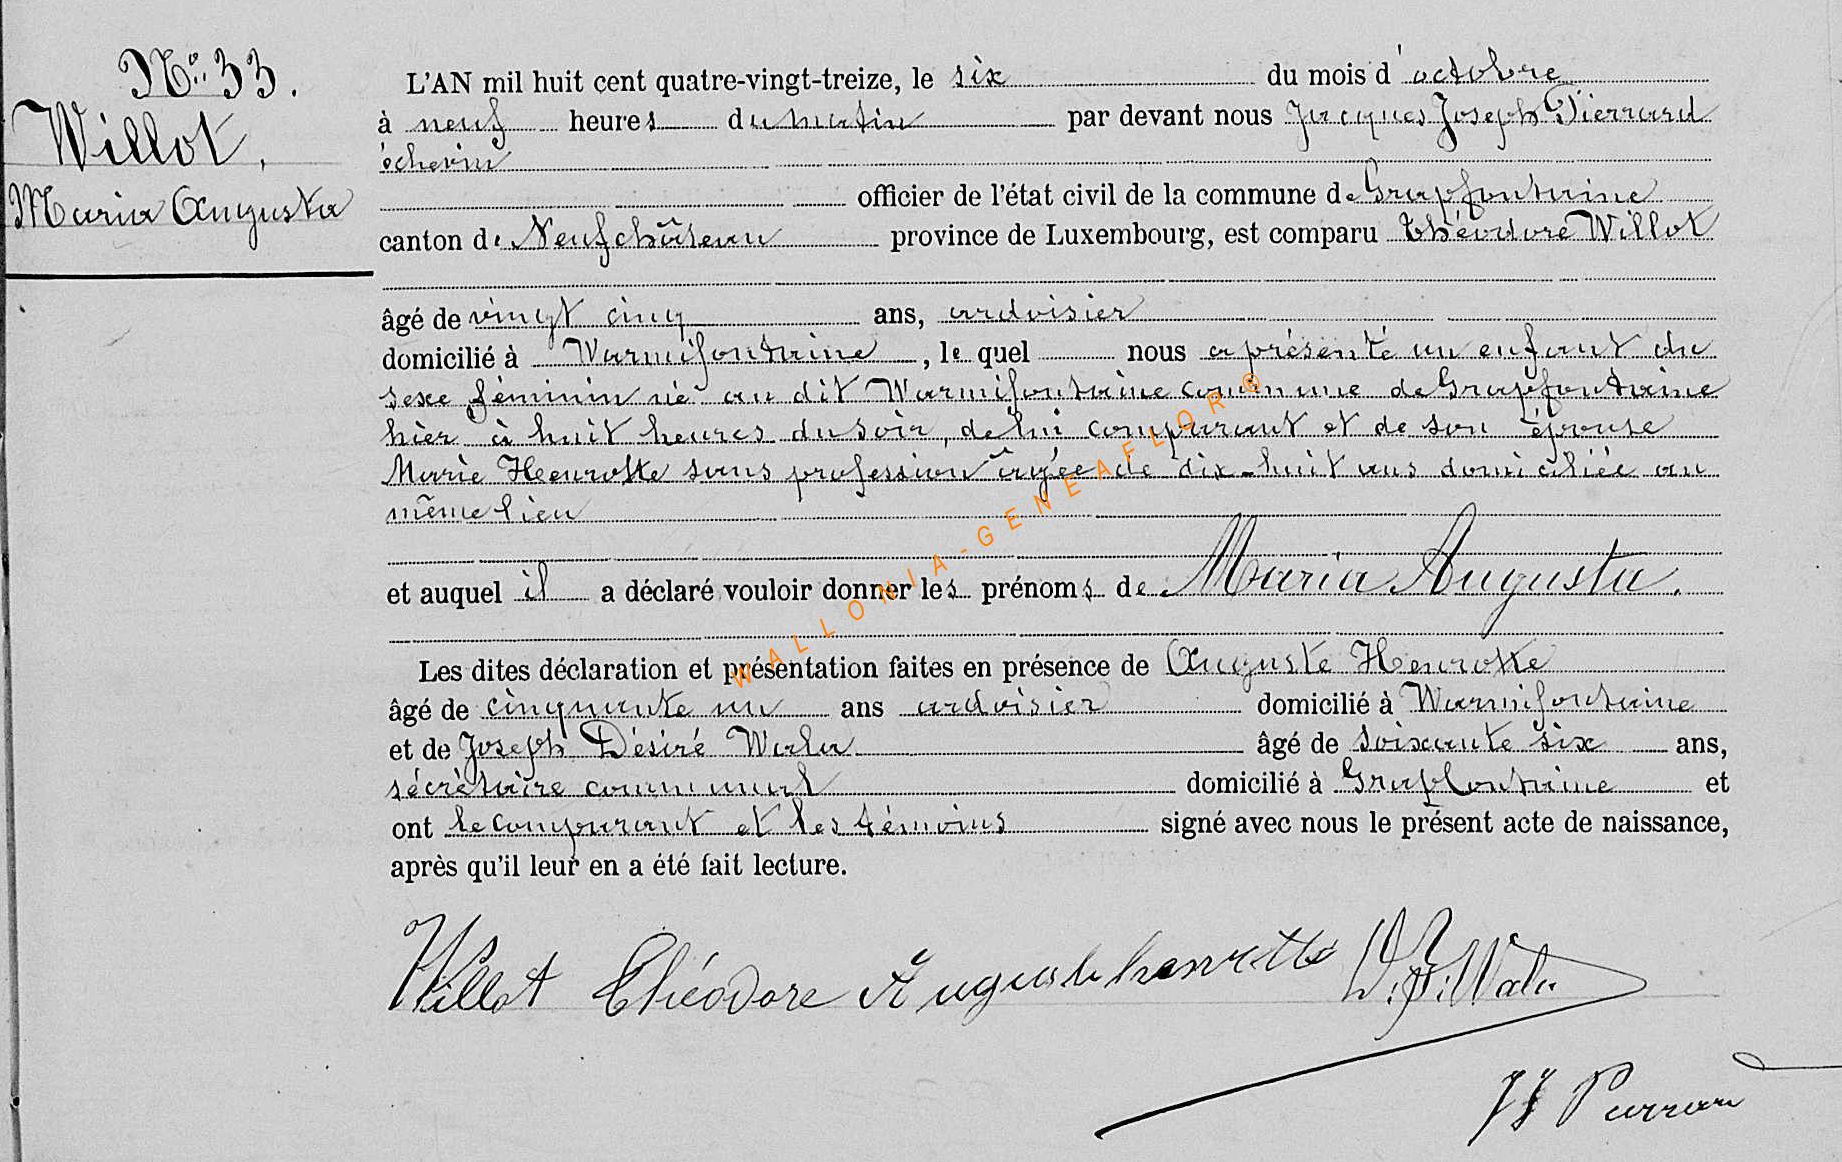 No. 33.
Willot,
Maria Augusta
L'AN mil huit cent quatre-vingt-treize, le six du mois d'octobre
à neuf heures du matin par devant nous Jacques Joseph Pierrard
échevin
officier de l'état civil de la commune de Grapfontaine
canton de Neufchâteau province de Luxembourg, est comparu Théodore Willot
âgé de vingt cinq ans, ardoisier
domicilié à Warmifontaine, le quel nous a présenté un enfant du
sexe féminin né au dit Warmifontaine commune de Grapfontaine
hier à huit heures du soir, de lui comparant et de son épouse
Marie Henrotte sans profession âgée de dix-huit ans domiciliée au
même lieu
et auquel il a déclaré vouloir donner les prénoms de Maria Augusta.
Les dites déclaration et présentation faites en présence de Auguste Henrotte
âgé de cinquante un ans ardoisier domicilié à Warmifontaine
et de Joseph Désiré Wala âgé de soixante six ans,
sécrètaire communal domicilié à Grapfontaine et
ont le comparant et les témoins signé avec nous le présent acte de naissance,
après qu'il leur en a été fait lecture.
Willot Théodore Auguste henrotte D. J. Wala
JJ Pierrard
WALLONIA-GENEAFLOR ©